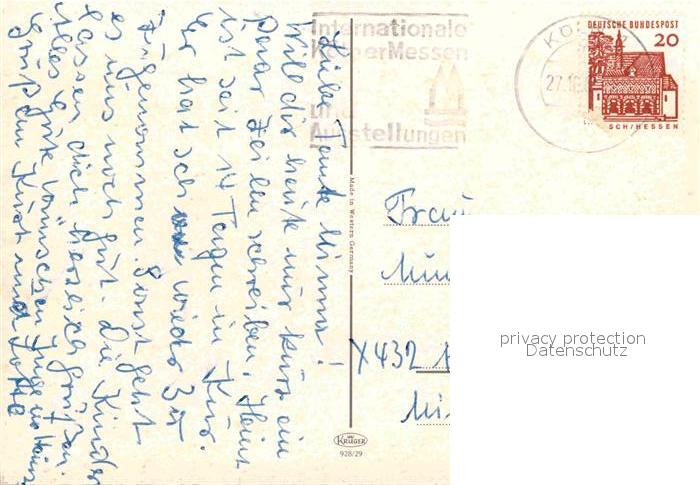 Liebe Tante Minna!
Will dir heute nur kurz ein
paar Zeilen schreiben. Heini
ist seit 14 Tagen in Kur.
Er hat schon wieder 3 ℔
zugenommen. Sonst geht
es uns noch gut. Die Kinder
lassen dich herzlich grüßen.
Alles Gute wünschen Jürgen Heini
Gruß an Kurt und
Internationale
Kölner Messen
und
Ausstellungen
KÖ
27.1
DEUTSCHE BUNDESPOST
20
SCH/HESSEN
Made in Western Germany
Frau
X432
KRÜGER
928/29
privacy protection
Datenschutz